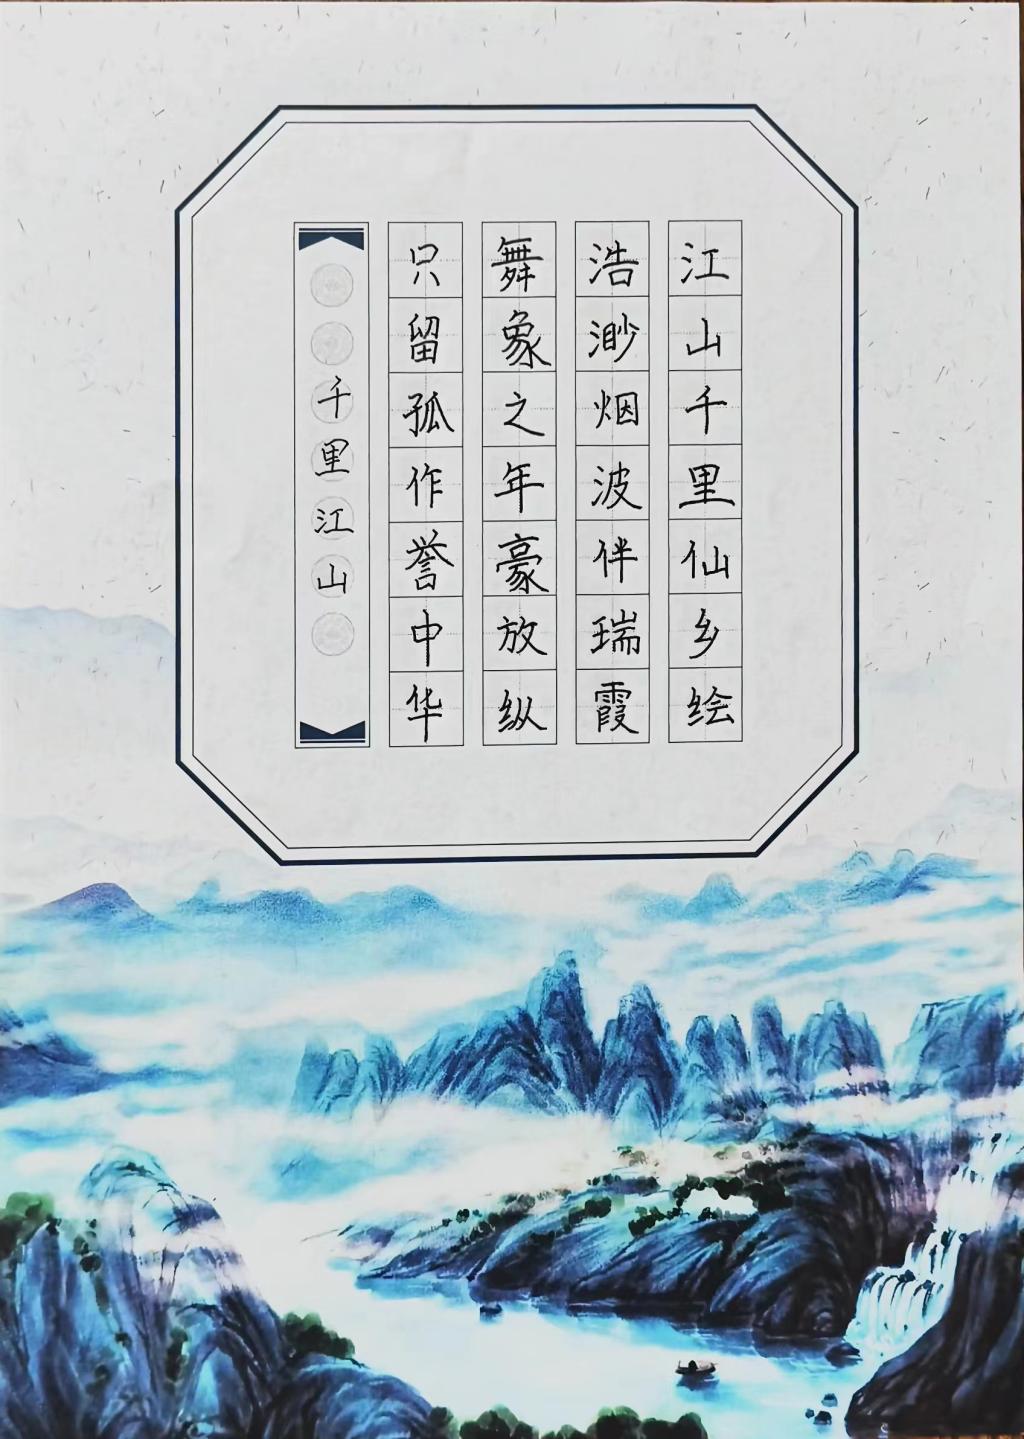 江山千里仙乡绘
浩渺烟波伴瑞霞
舞象之年豪放纵
只留孤作誉中华
千里江山